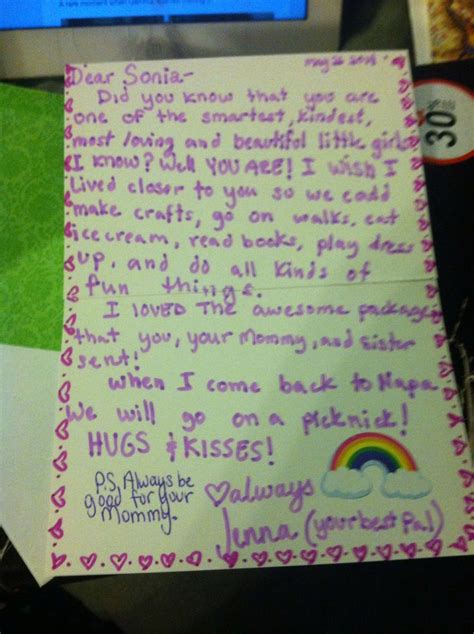 May 26
Dear Sonia-
Did you know that you are
one of the smartest, kindest,
most loving and beautiful little girls
I know? Well YOU ARE! I wish I
lived closer to you so we could
make crafts, go on walks, eat
icecream, read books, play dress
up, and do all kinds of
fun things.
I LOVED The awesome package
that you, your Mommy, and sister
sent!
When I come back to Napa
We will go on a picknick!
HUGS & KISSES!
P.S. Always be
good for your
Mommy.
always
Jenna (your best Pal)
30%